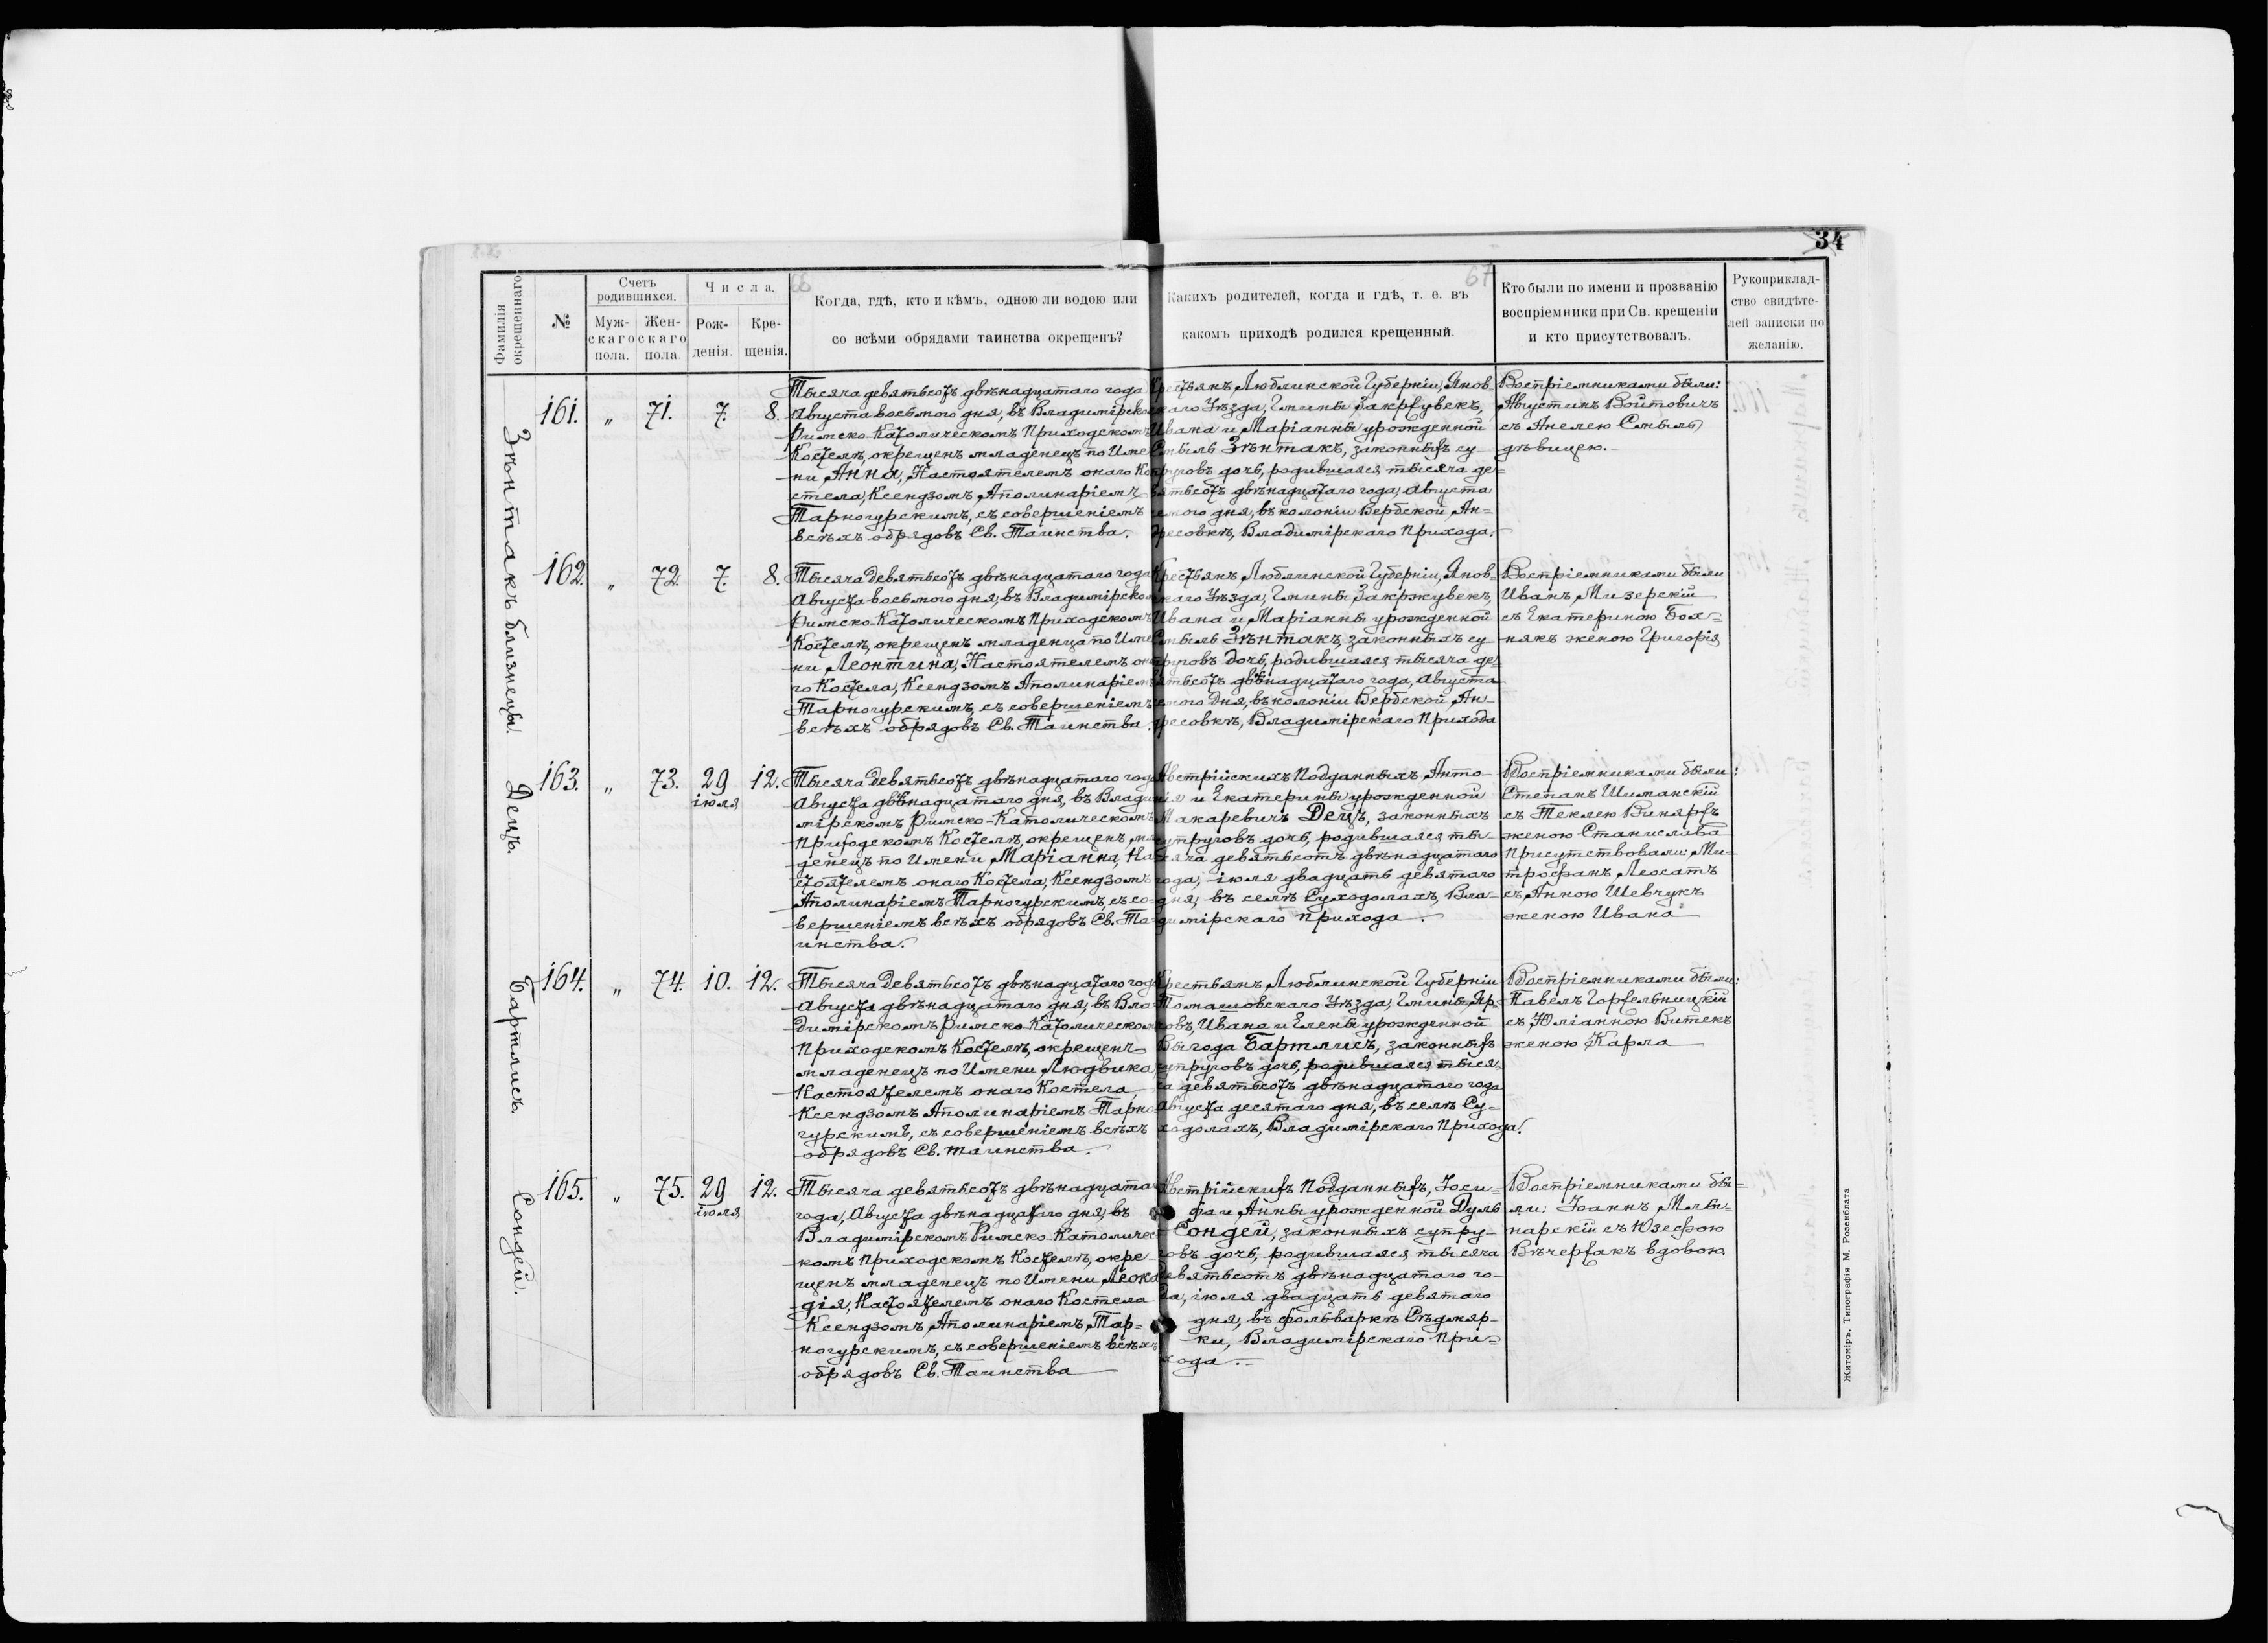 34
66
67
Фамилія окрещеннаго
№
Счетъ родившихся.
Муж-
скаго
пола.
Жен-
скаго
пола.
Числа.
Рож-
денія.
Кре-
щенія.
Когда, гдѣ, кто и кѣмъ, одною ли водою или
со всѣми обрядами таинства окрещенъ?
Какихъ родителей, когда и гдѣ, т. е. въ
какомъ приходѣ родился крещенный.
Кто были по имени и прозванію
воспріемники при Св. крещеніи
и кто присутствовалъ.
Рукоприклад-
ство свидѣте-
лей записки по
желанію.
Зѣнтакъ близнецы.
161. „ 71. 7. 8.
Тысяча девятьсотъ двѣнадцатаго года
Августа восьмого дня, въ Владимірско
Римско-Католическомъ Приходскомъ
Костелѣ, окрещенъ младенецъ по Име
ни Анна, Настоятелемъ онаго Ко
стела, Ксендзомъ Аполинаріемъ
Тарногурскимъ, съ совершеніемъ
всѣхъ обрядовъ Св. Таинства.
Крестьянъ Люблинской Губерніи, Янов
скаго Уѣзда, Гмины Закржувекъ,
Ивана и Маріанны урожденной
Смыль Зѣнтакъ, законныхъ су
пруговъ дочь, родившаяся тысяча де-
вятьсотъ двѣнадцатаго года, Августа
семого дня, въ колоніи Вербской Ан-
дресовкѣ, Владимірскаго Прихода.
Воспріемниками были:
Августинъ Войтовичъ
съ Анелею Смыль
дѣвицею.
162. „ 72. 7. 8.
Тысяча девятьсотъ двѣнадцатаго года
Августа восьмого дня, въ Владимірском
Римско-Католическомъ Приходскомъ
Костелѣ, окрещенъ младенца по Име
ни Леонтина, Настоятелемъ она
го Костела, Ксендзомъ Аполинаріем
Тарногурскимъ, съ совершеніемъ
всѣхъ обрядовъ Св. Таинства.
Крестьянъ Люблинской Губерніи, Янов-
скаго Уѣзда, Гмины Закржувекъ,
Ивана и Маріанны урожденной
Смыль Зѣнтакъ, законныхъ су-
пруговъ дочь, родившаяся тысяча де-
вятьсотъ двѣнадцатаго года, Августа
семого дня, въ колоніи Вербской Ан-
дресовкѣ, Владимірскаго Прихода
Воспріемниками были
Иванъ Мизерскій
съ Екатериною Бох-
някъ женою Григорія
Децъ.
163. „ 73. 29 іюля 12.
Тысяча девятьсотъ двѣнадцатаго года
Августа двѣнадцатаго дня, въ Влади
мірскомъ Римско-Католическомъ
Приходскомъ Костелѣ, окрещенъ мла
денецъ по Имени Маріанна, На
стоятелемъ онаго Костела, Ксендзомъ
Аполинаріемъ Тарногурскимъ, съ со-
вершеніемъ всѣхъ обрядовъ Св. Та-
инства.
Австрійскихъ Подданныхъ, Анто-
нія и Екатерины урожденной
Макаревичъ Децъ, законныхъ
супруговъ дочь, родившаяся ты-
сяча девятьсотъ двѣнадцатаго
года, іюля двадцать девятаго
дня, въ селѣ Суходолахъ, Вла-
димірскаго прихода.
Воспріемниками были:
Степанъ Шиманскій
съ Теклею Винярхъ
женою Станислава
Присутствовали: Ми-
трофанъ Леосатъ
съ Анною Шевчукъ
женою Ивана
Бартлисъ.
164. „ 74. 10. 12.
Тысяча девятьсотъ двѣнадцатаго года
Августа двѣнадцатаго дня, въ Вла-
димірскомъ Римско-Католическом
Приходскомъ Костелѣ, окрещенъ
младенецъ по Имени Людвика,
Настоятелемъ онаго Костела,
Ксендзомъ Аполинаріемъ Тарно
гурскимъ, съ совершеніемъ всѣхъ
обрядовъ Св. таинства.
Крестьянъ Люблинской Губерніи
Томашовскаго Уѣзда, Гмины Яр-
човъ, Ивана и Елены урожденной
Выгода Бартлисъ, законныхъ
супруговъ дочь, родившаяся тыся-
ча девятьсотъ двѣнадцатаго года
Августа десятаго дня, въ селѣ Су-
ходолахъ, Владимірскаго Прихода.
Воспріемниками были:
Павелъ Горжельницкій
съ Юліанною Витекъ
женою Карла
Сондей.
165. „ 75. 29 іюля 12.
Тысяча девятьсотъ двѣнадцата
года, Августа двѣнадцатаго дня, въ
Владимірскомъ Римско-Католичес-
комъ Приходскомъ Костелѣ, окре
щенъ младенецъ по Имени Леока
дія, Настоятелемъ онаго Костела
Ксендзомъ Аполинаріемъ Тар-
ногурскимъ, съ совершеніемъ всѣхъ
обрядовъ Св. Таинства
Австрійскихъ Подданныхъ, Іоси-
фа и Анны урожденной Дуль
Сондей, законныхъ супру-
говъ дочь, родившаяся тысяча
девятьсотъ двѣнадцатаго го-
да, іюля двадцать девятаго
дня, въ фольваркѣ Сѣдмяр-
ки, Владимірскаго При-
хода.
Воспріемниками бы-
ли: Іоаннъ Млы-
нарскій съ Юзефою
Вѣчержакъ вдовою.
Житоміръ, Типографія М. Розенблата